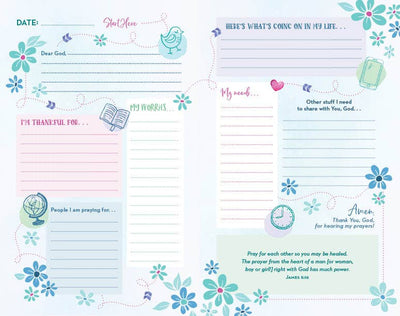 DATE:
Start Here
Dear God,
MY WORRIES. . .
I'M THANKFUL FOR. . .
People I am praying for. . .
HERE'S WHAT'S GOING ON IN MY LIFE. . .
My needs. . .
Other stuff I need
to share with You, God. . .
Amen.
Thank You, God,
for hearing my prayers!
Pray for each other so you may be healed.
The prayer from the heart of a man [or woman,
boy or girl] right with God has much power.
JAMES 5:16